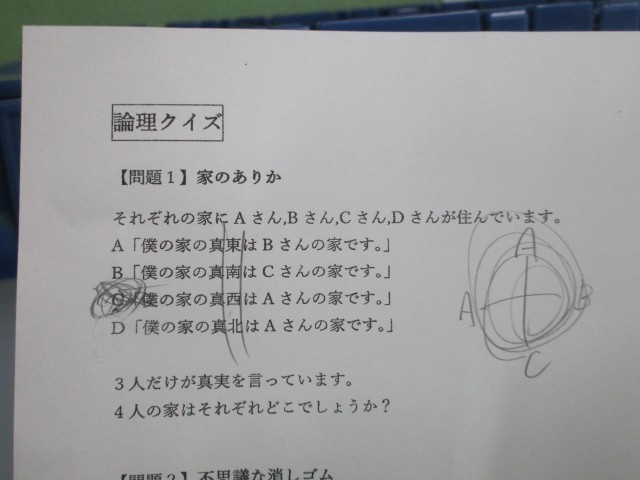 論理クイズ
【問題1】家のありか
それぞれの家にAさん,Bさん,Cさん,Dさんが住んでいます。
A「僕の家の真東はBさんの家です。」
B「僕の家の真南はCさんの家です。」
C「僕の家の真西はAさんの家です。」
D「僕の家の真北はAさんの家です。」
A
A
B
C
3人だけが真実を言っています。
4人の家はそれぞれどこでしょうか?
【問題2】不思議な消しゴム